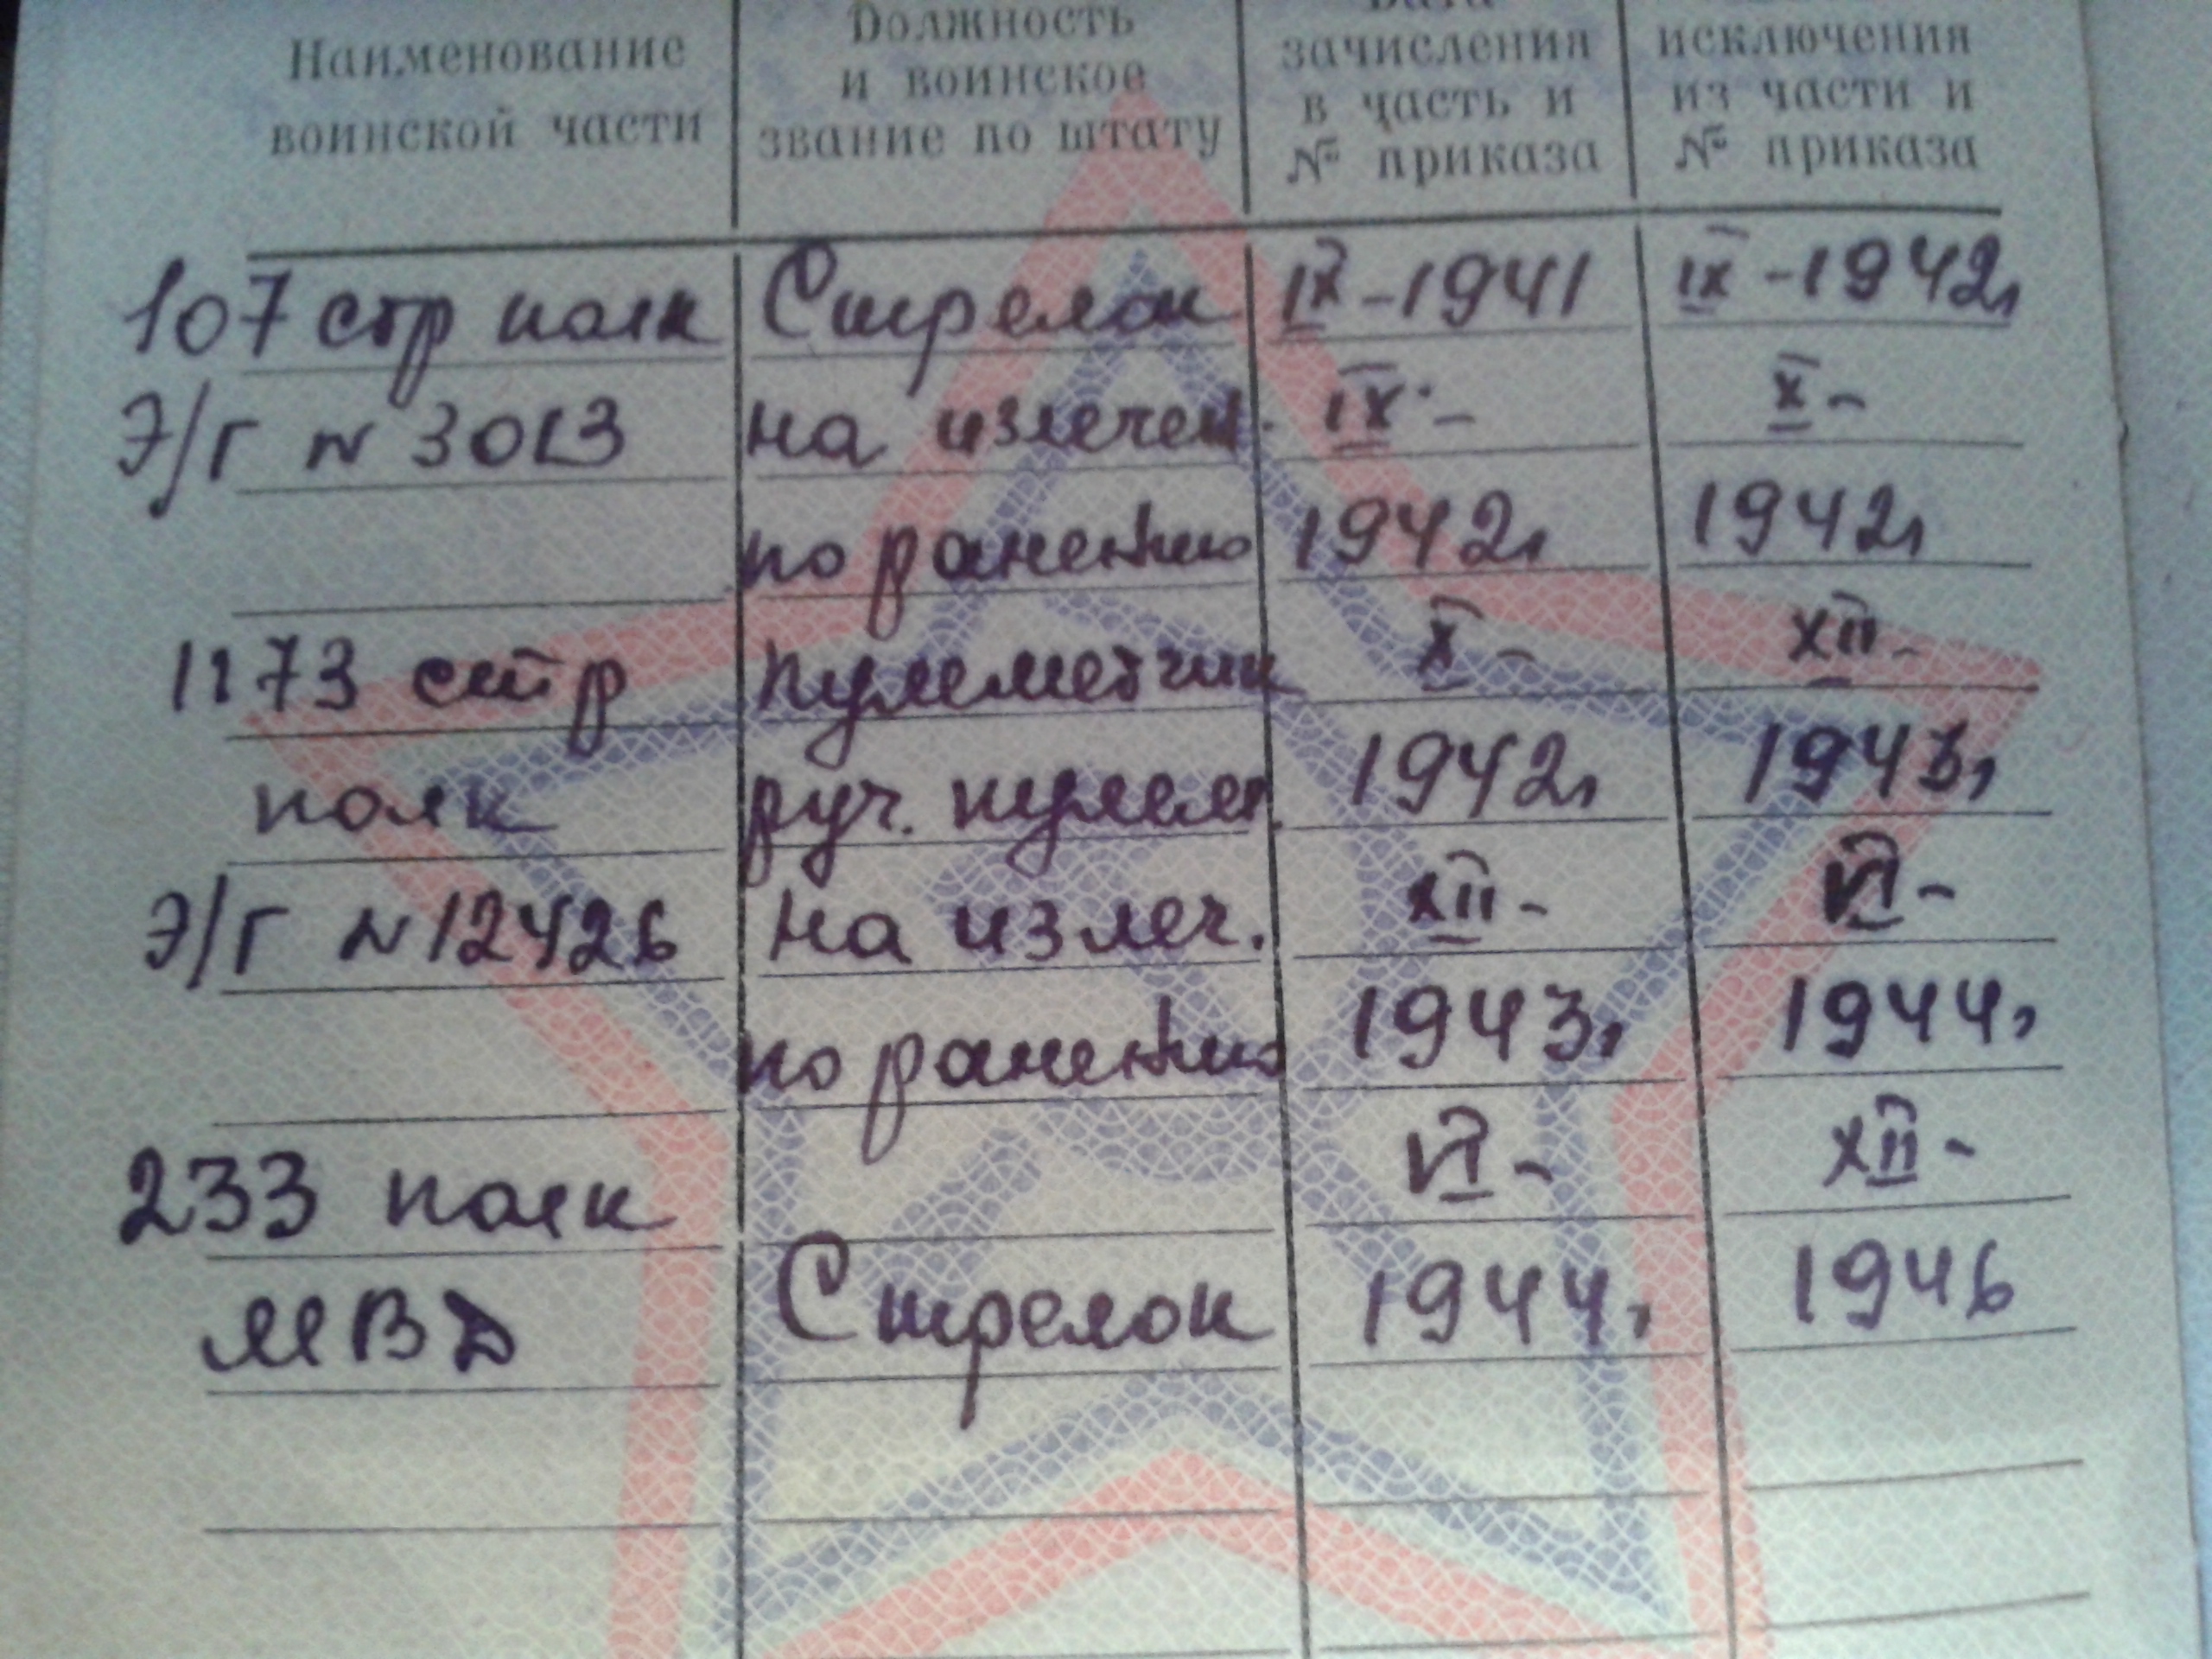 Наименование
воинской части
Должность
и воинское
звание по штату
Дата
зачисления
в часть и
№ приказа
исключения
из части и
№ приказа
107 стр полк Стрелок IX-1941 IX-1942,
Э/Г N 3013 на излечен. IX- X-
по ранению 1942, 1942,
1173 стр пулеметчик X- XII-
полк руч. пулем. 1942, 1943,
Э/Г N 12426 на излеч. XII- VI-
по ранению 1943, 1944,
233 полк VI- XII-
МВД Стрелок 1944, 1946